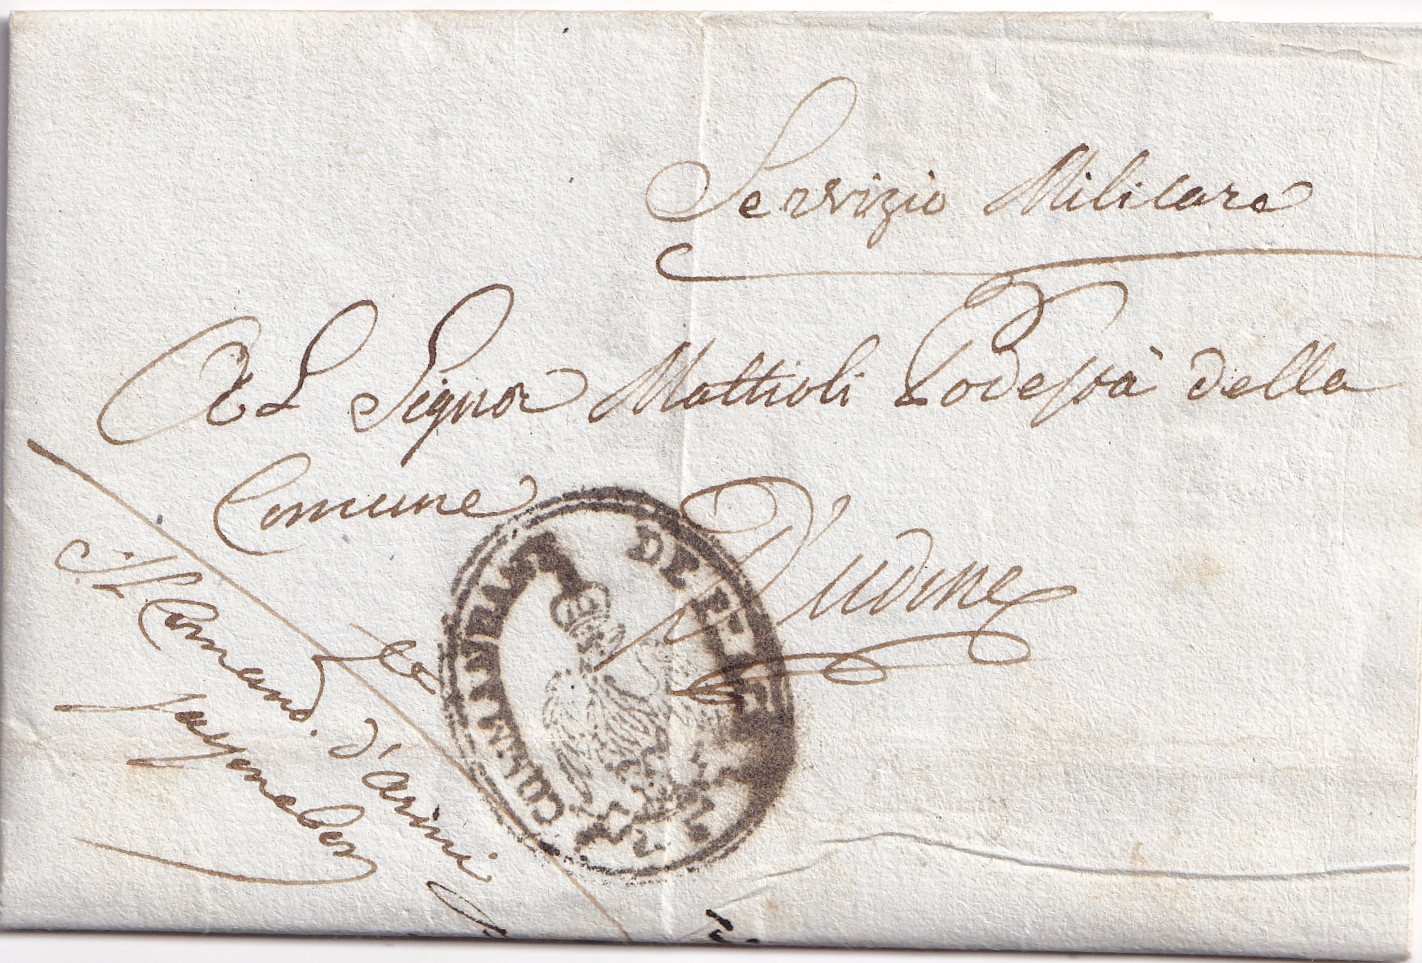 Servizio Militare
Al Signor Mattioli Podestà della
Comune
D'udine
il Comand. d'armi
COMMANDANT DE